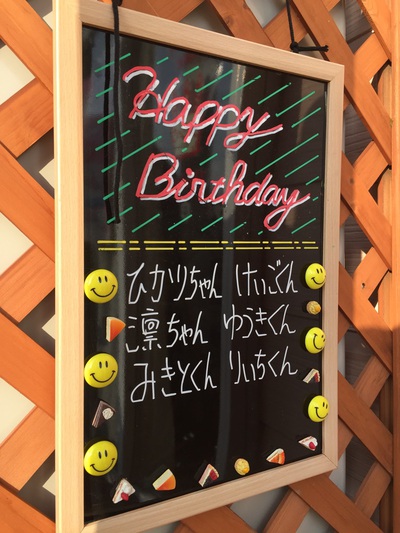 Happy
Birthday
ひかりちゃん けいごくん
凛ちゃん ゆうきくん
みきとくん りいちくん